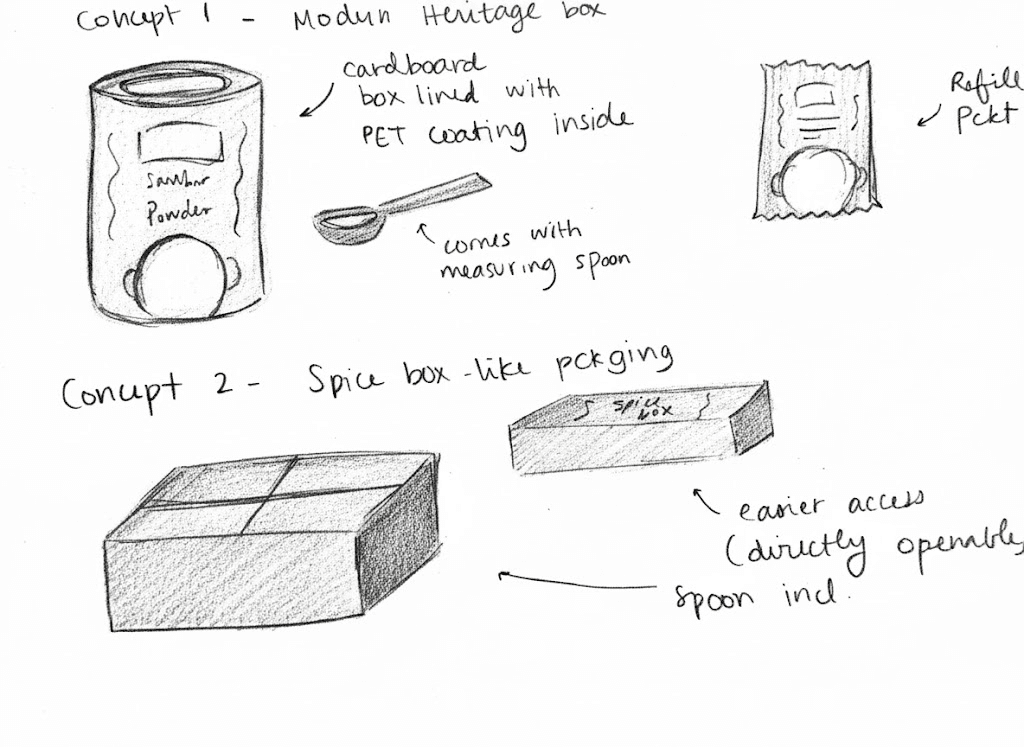 Concept 1 - Modun Heritage box
cardboard
box lined with
PET coating inside
Refill
Pckt
Sambar
Powder
comes with
measuring spoon
Concept 2 - Spice box-like pckging
spice
box
easier access
(directly openable
spoon incl.